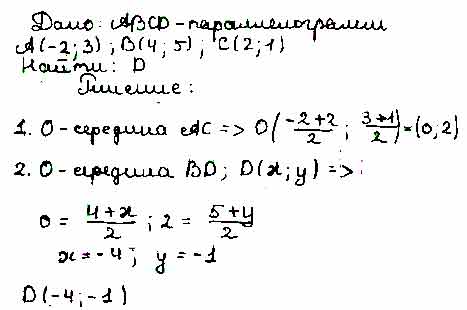 Дано: ABCD - параллелограмм
A(-2; 3) ; B(4; 5) ; C(2; 1)
Найти: D
Решение:
1. O - середина AC => O(\frac{-2+2}{2} ; \frac{3+1}{2}) = (0, 2)
2. O - середина BD; D(x; y) =>
0 = \frac{4+x}{2} ; 2 = \frac{5+y}{2}
x = -4 ; y = -1
D(-4; -1)